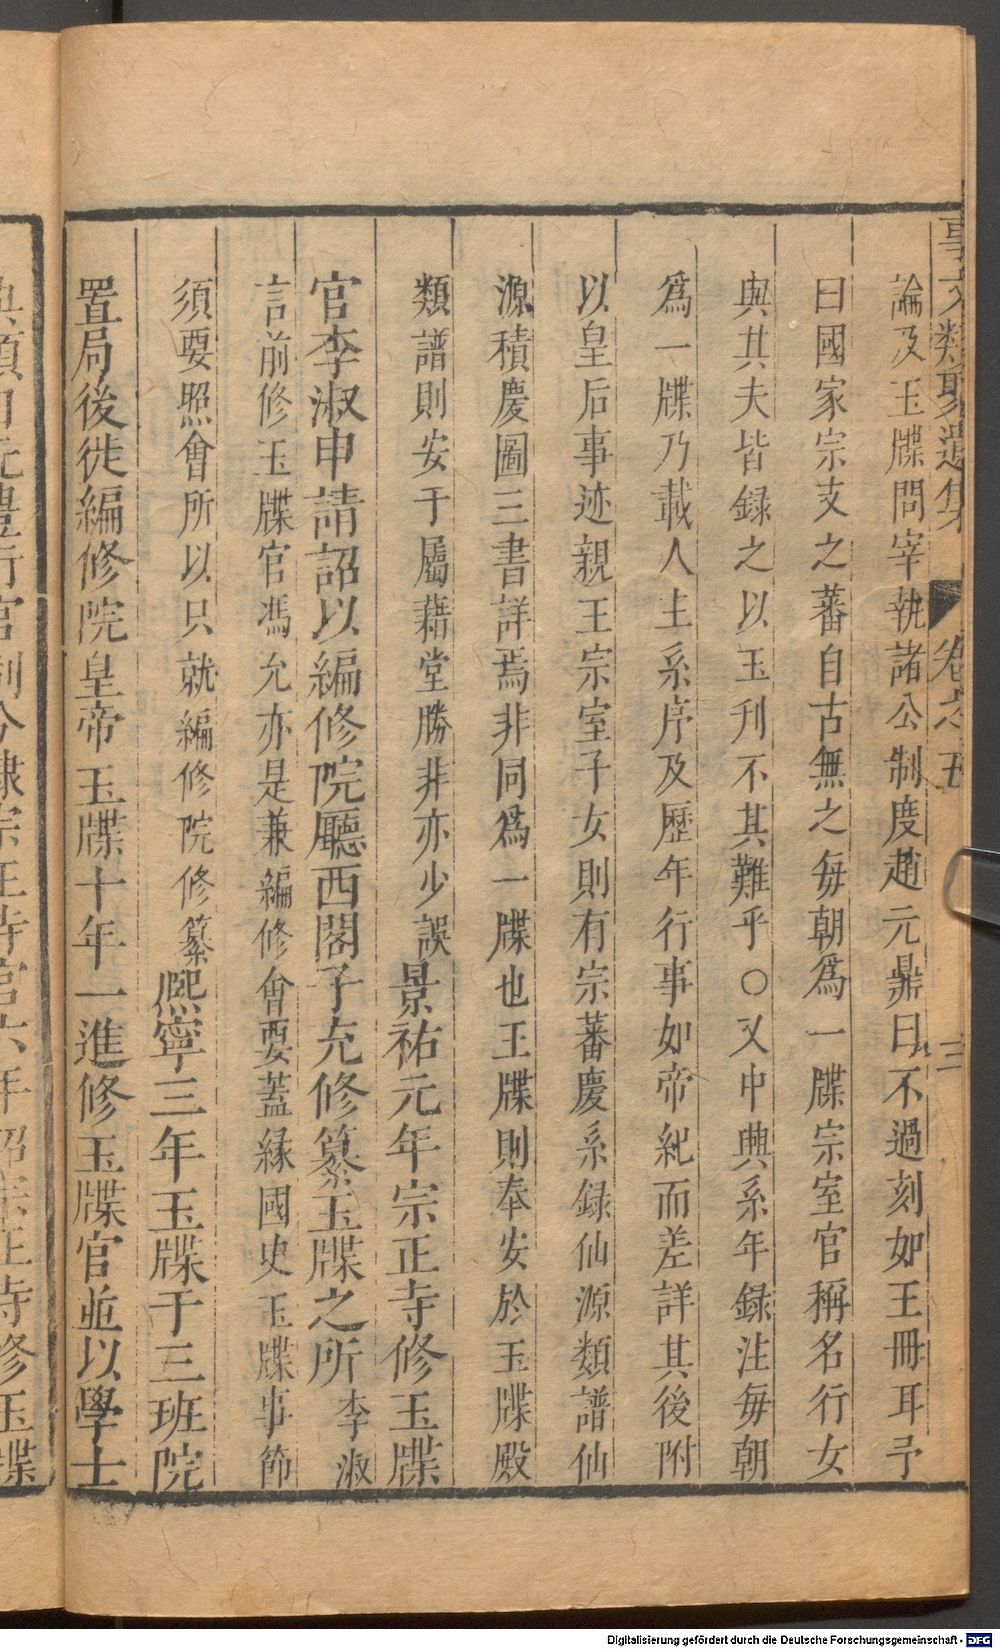 事文類聚遺集 卷之五 三
論及玉牒問宰執諸公制度趙元鼎曰不過刻如玉冊耳予
曰國家宗支之蕃自古無之每朝爲一牒宗室官稱名行女
與其夫皆録之以玉刋不其難乎○又中興系年録注每朝
爲一牒乃載人主系序及歷年行事如帝紀而差詳其後附
以皇后事迹親王宗室子女則有宗蕃慶系録仙源類譜仙
源積慶圖三書詳焉非同爲一牒也玉牒則奉安於玉牒殿
類譜則安于屬藉堂勝非亦少誤景祐元年宗正寺修玉牒
官李淑申請詔以編修院廳西閣子充修纂玉牒之所李淑
言前修玉牒官馮允亦是兼編修會要蓋縁國史玉牒事節
須要照會所以只就編修院修纂熈寧三年玉牒于三班院
置局後徙編修院皇帝玉牒十年一進修玉牒官並以學士
官制今隷宗正寺官六年詔宗正寺修玉牒
Digitalisierung gefördert durch die Deutsche Forschungsgemeinschaft - DFG